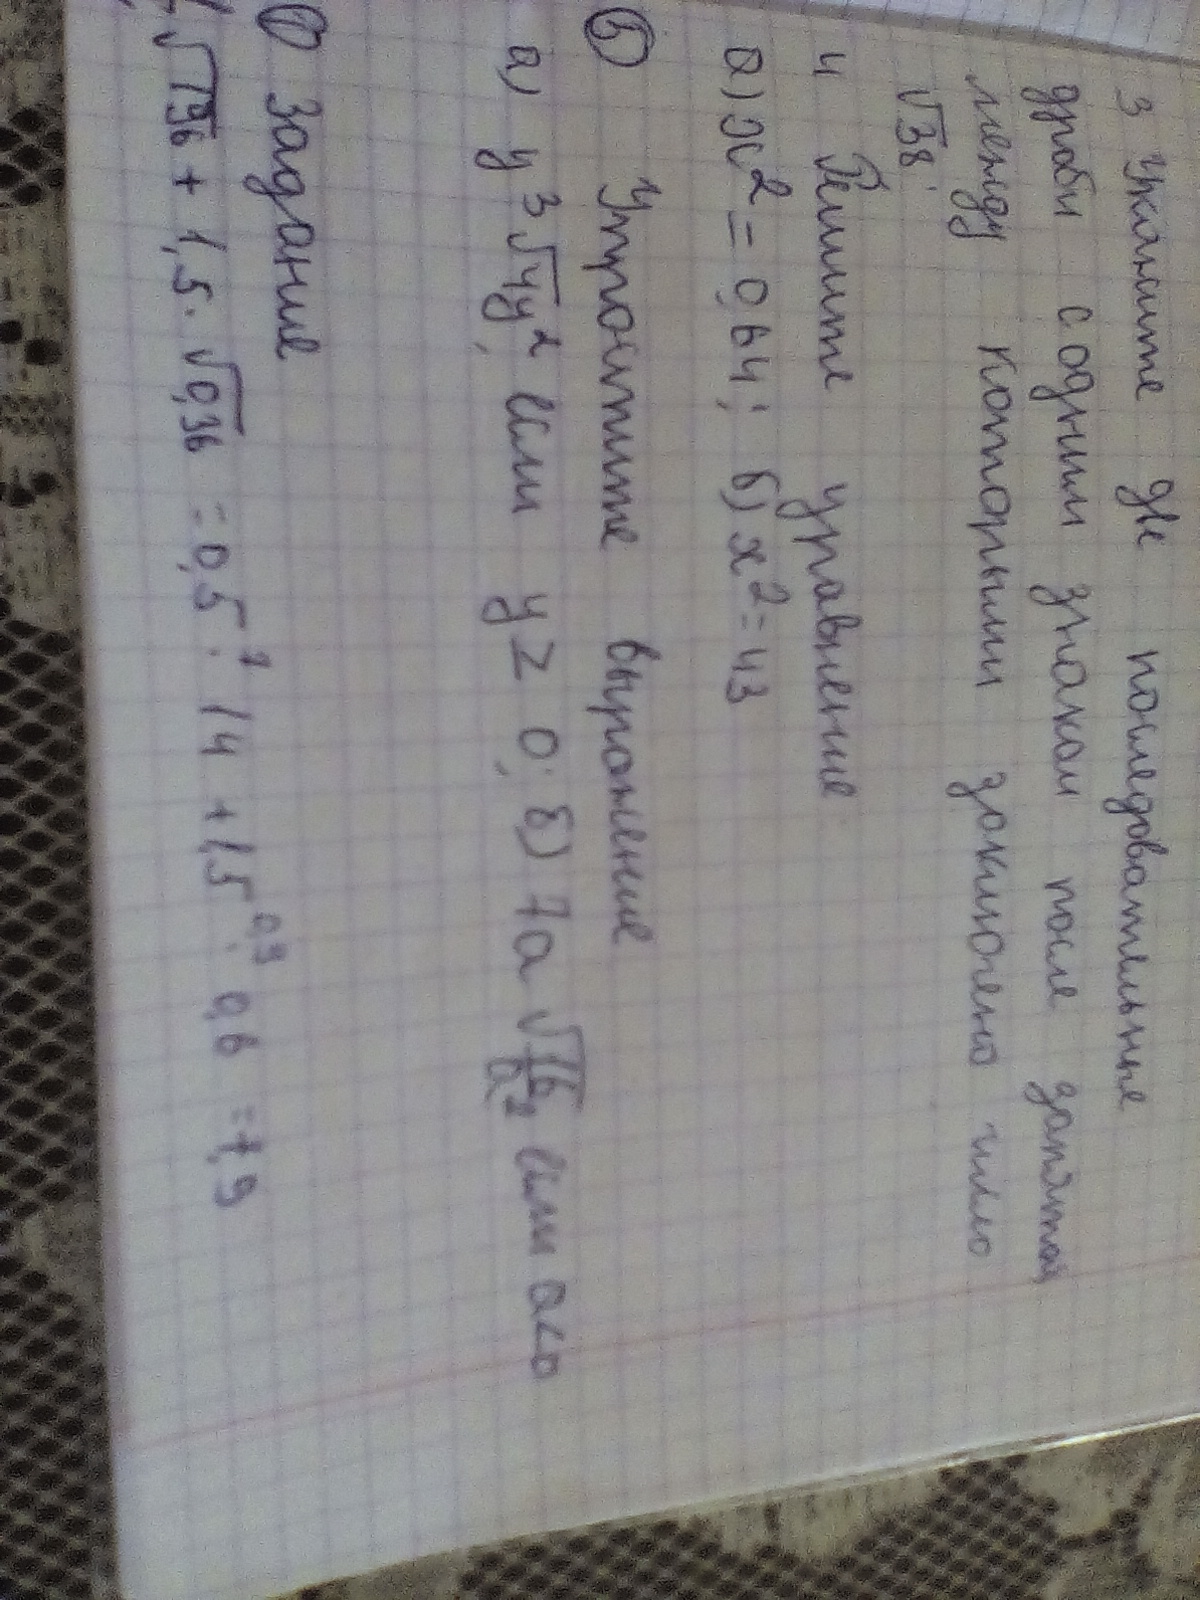 3 Укажите две последовательные
дроби с одним знаком после запятой
между которыми заключено число
√38
4 Решите уравнение
а) x² = 0,64; б) x² = 43
5 Упростите выражение
а) y³√4y², если y ≥ 0; б) 7a √16/a² если a<0
1 Задание
√196 + 1,5 · √0,36 = 0,5 · 14 + 1,5 · 0,6 = 7,9
7 0,9